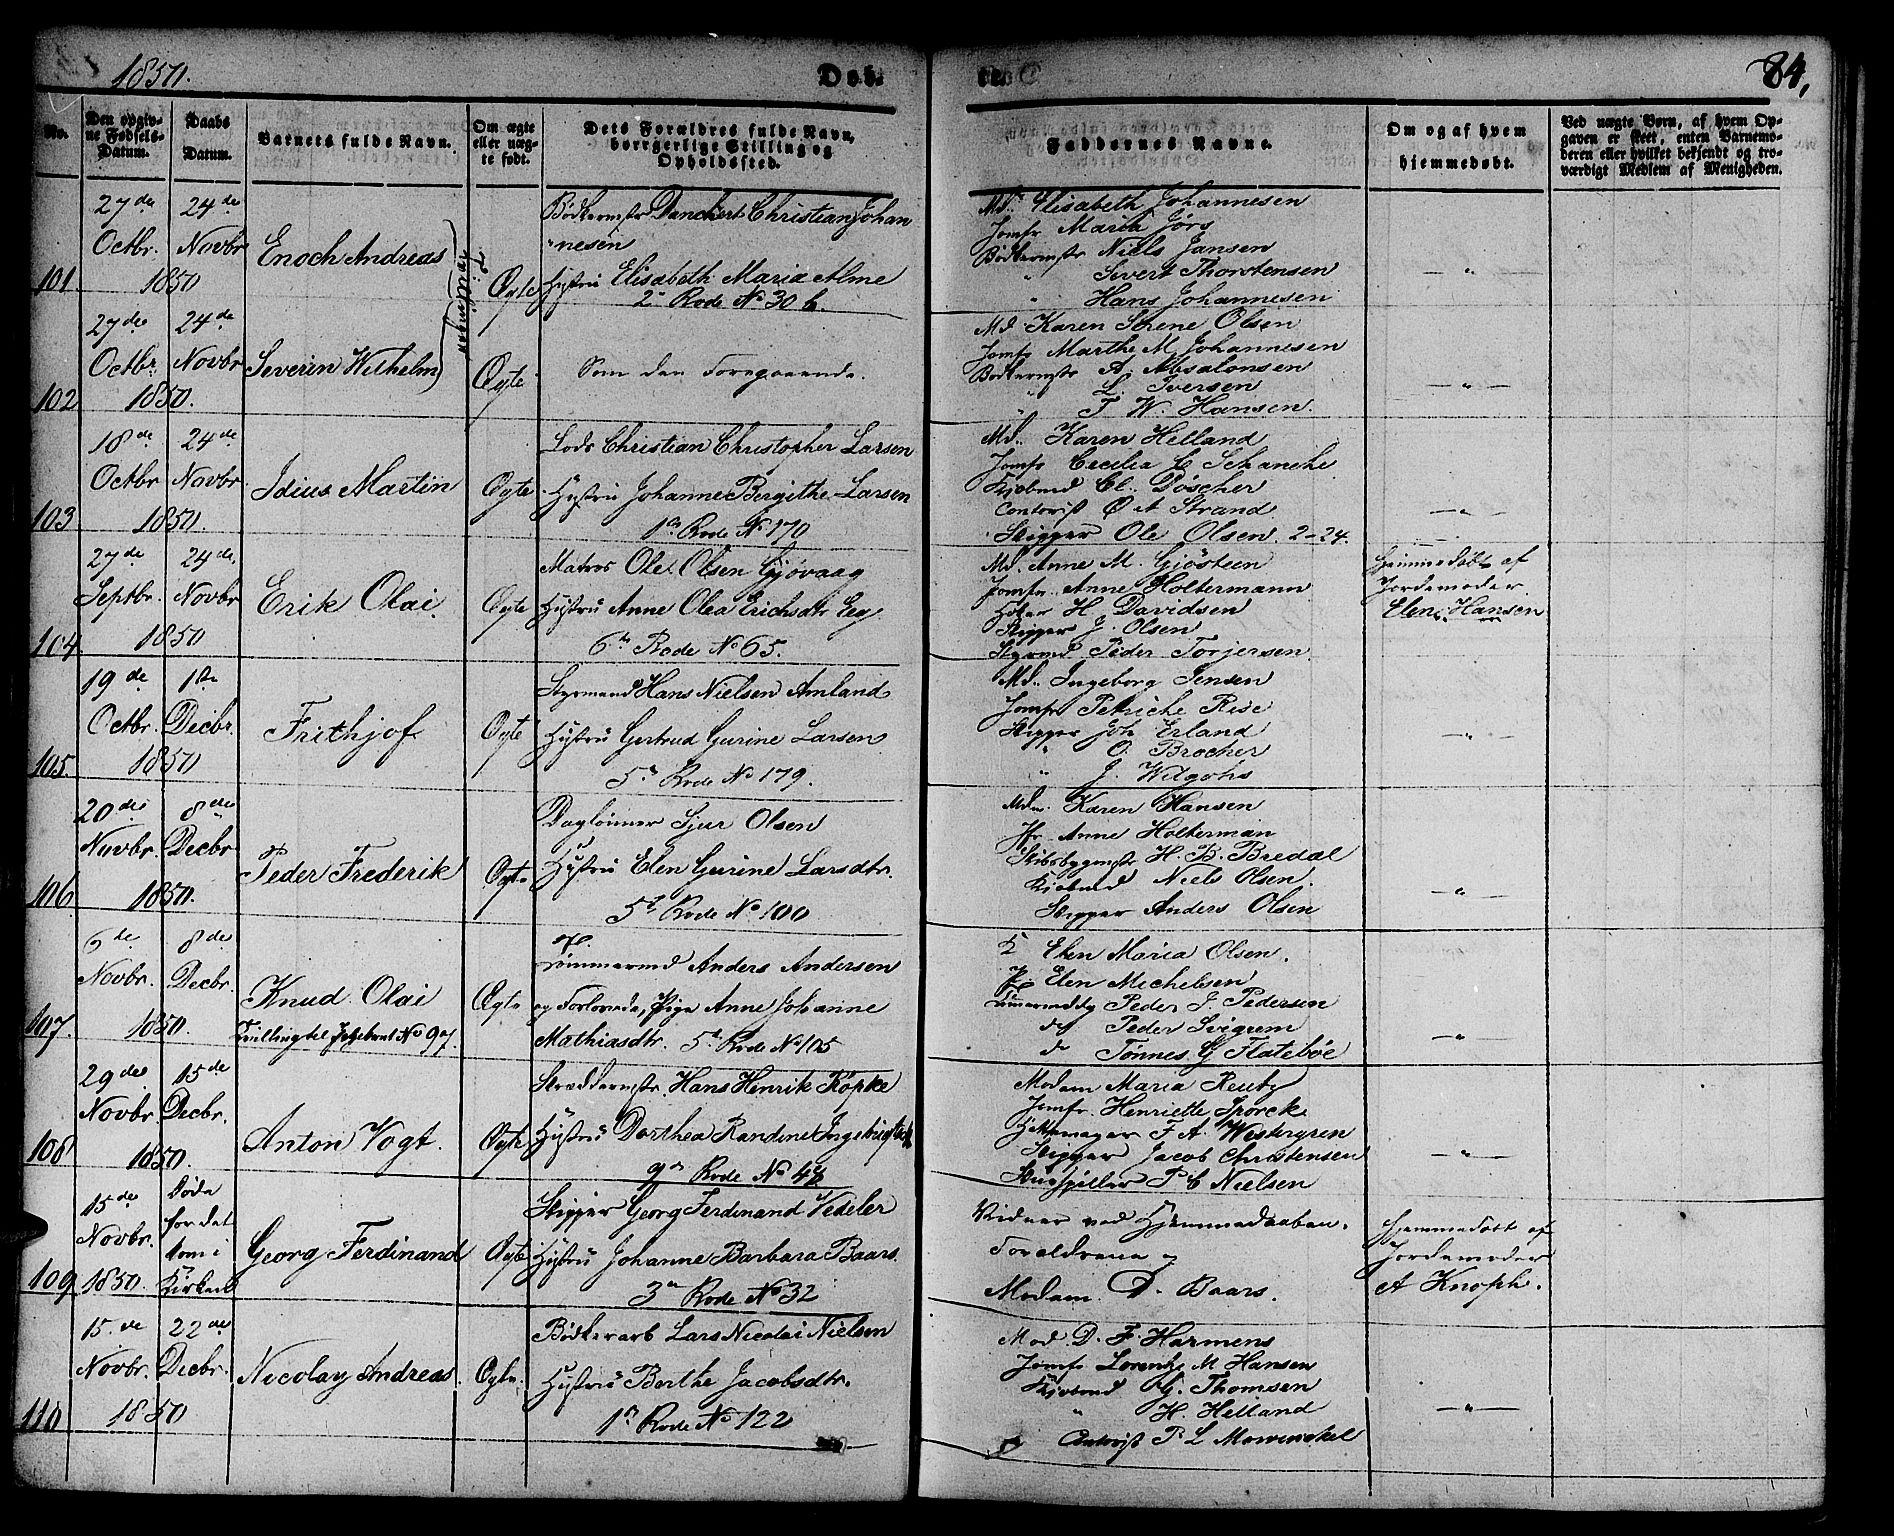 1850.
Døb-
te.
84,
No.
Den opgiv-
ne Fødsels-
Datum.
Daabs
Datum.
Barnets fulde Navn.
Om ægte
eller uæg-
te født.
Dets Forældres fulde Navn,
borgerlige Stilling og
Opholdssted.
Faddernes Navne.
Om og af hvem
hjemmedøbt.
Ved uægte Børn, af hvem Op-
gaven er skeet, enten Barnemo-
deren eller hvilket bekjendt og tro-
værdigt Medlem af Menigheden.
101
27de
Octbr.
24de
Novbr
1850
Enoch Andreas
Tvillinger
Ægte
Bødkermstr Danchert Christian Johan
nesen
Hustru Elisabeth Maria Alme
2 Rode No 30 b.
Md. Elisabeth Johannesen
Jomfr Maria Jørs
Bødkermstr Niels Jansen
" Severt Thorstensen
" Hans Johannesen
— " —
102
27de
Octbr.
24de
Novbr
1850.
Severin Wilhelm
Ægte
Som den Foregaaende.
Md Karen Serene Olsen
Jomfr Marthe M. Johannesen
Bødkermstr A. Absalonsen
" L. Iversen
" T. W. Hansen.
— " —
103
18de
Octbr
24de
Novbr
1850.
Idius Martin
Ægte
Lods Christian Christopher Larsen
Hustru Johanne Bergithe Larsen
1ste Rode No 170
Md. Karen Helland
Jomfr Cecilia C Schanche
Kjøbmd Cl. Døscher
Contorist O A Strand
Skipper Ole Olsen. 2-24.
— " —
104
27de
Septbr.
24de
Novbr
1850
Erik Olai
Ægte
Matros Ole Olsen Gjøvaag
Hustru Anne Olea Erichsdtr Eeg
6te Rode No 65.
Md. Anne M. Gjøsteen
Jomfr. Anne Holtermann
H. Davidsen
Skipper J. Olsen
Styrmd Peder Torjersen
Hjemmedøbt af
Jordemoder
Elen Hansen
105.
19de
Octbr.
1ste
Decbr.
1850
Frithjof
Ægte
Styrmand Hans Nielsen Amland
Hustru Gertrud Gurine Larsen
5te Rode No 179.
Md. Ingeborg Jensen
Jomfr Petriche Rise
Skipper Joh Erland
" O. Brocher
" J. Wilgohs
— " —
106
20de
Novbr.
8de
Decbr
1850.
Peder Frederik
Ægte
Dagleiner Sjur Olsen
Hustru Elen Gurine Larsdtr.
5te Rode No 100
Mdm. Karen Hansen
Jfr. Anne Holterman
Skibsbygmstr H. B. Bredal
Kjøbmd Niels Olsen.
Skipper Anders Olsen
— " —
107.
6de
Novbr.
8de
Decbr.
1850.
Knud Olai
Tvilling til No 97.
Ægte
Tømmermd Anders Andersen
og Forlovede, Pige Anne Johanne
Mathiasdtr. 5te Rode No 105
K Elen Maria Olsen.
P. Elen Michelsen
Peder J. Pedersen
do Peder Svigum
do Tønnes G Flatebøe
— " —
108
29de
Novbr.
15de
Decbr.
1850.
Anton Vogt.
Ægte
Skræddermstr. Hans Henrik Köpke
Hustru Dorthea Randine
9de Rode No 48
Madam Maria Reutz
Jomfr. Henriette Sporck
F A. Westergren
Skipper Jacob Christensen
Skuespiller P C Nielsen
— " —
109
15de
Novbr.
1850.
Døde
før det
kom i
Kirken
Georg Ferdinand
Ægte
Skipper Georg Ferdinand Vedeler
Hustru Johanne Barbara Baars.
3de Rode No 32
Vidner ved Hjemmedaaben.
Forældrene og
Madam D. Baars.
Hjemmedøbt af
Jordemoder
A Knoph.
110
15.de
Novbr.
22de
Decbr.
1850
Nicolay Andreas.
Ægte.
Bødkerarb Lars Nicolai Nielsen
Hustru Berthe Jacobsdtr.
1ste Rode No 122
Mad D. F. Harmens
Jomfr Lorentze M Hansen
Kjøbmd G. Thomsen
" H. Helland
Contorist P L Mowinckel
— " —